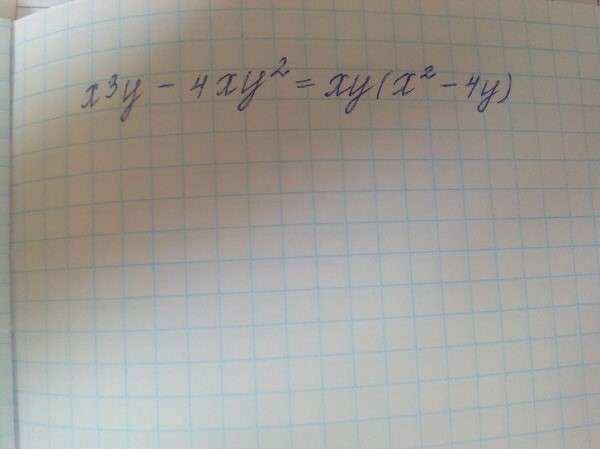 x3y - 4xy² = xy(x² - 4y)